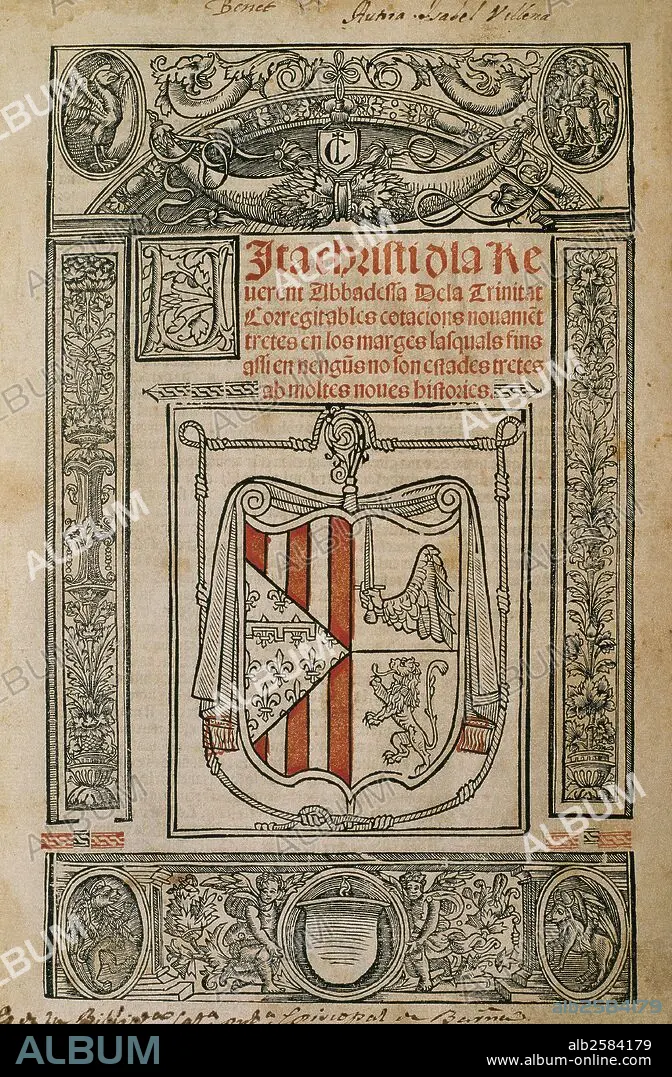 Benet Autora Isabel Villena
C
Vita christi dla Re
uerent Abbadessa Dela Trinitat
Corregit ab les cotacions nouamēt
tretes en los marges lasquals fins
assi en nengūs no son estades tretes
ab moltes noues histories.
Episcopal
ALBUM
alb2584179
alb2584179
www.album-online.com